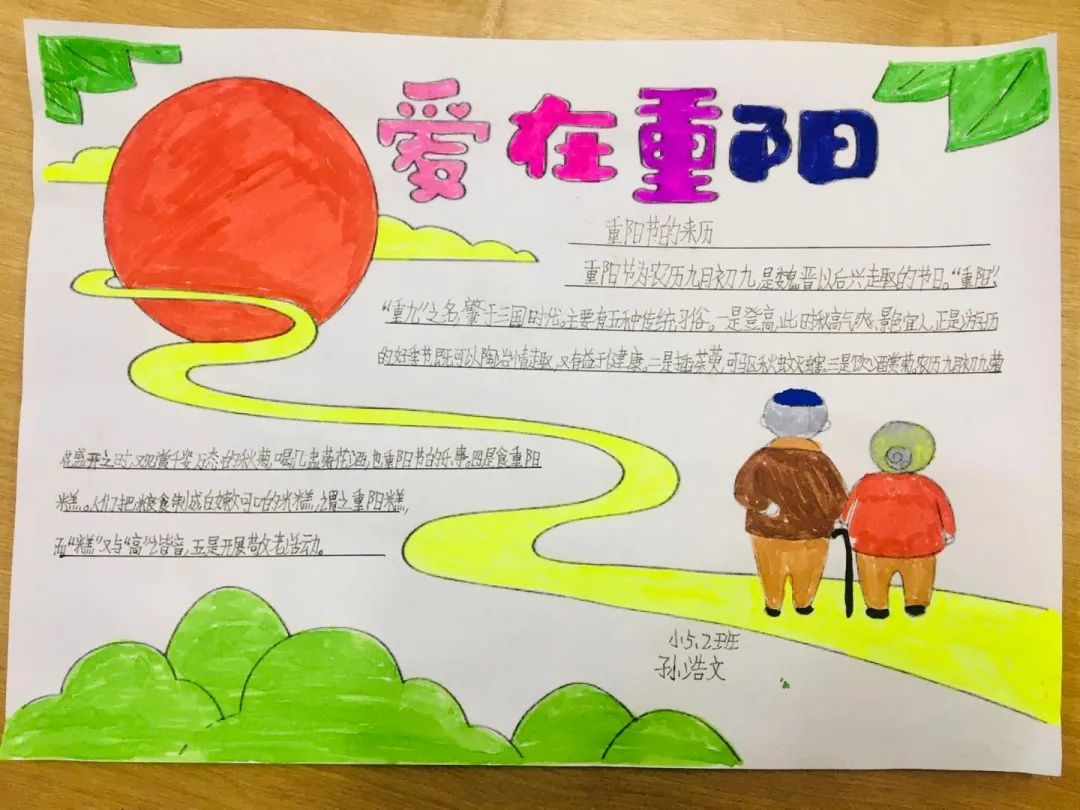 爱在重阳
重阳节的来历
重阳节为农历九月初九,是魏晋以后兴起的节日。“重阳”、
“重九”之名,肇于三国时代,主要有五种传统习俗。一是登高,此时秋高气爽、景色宜人,正是游历
的好季节既可以陶冶情趣,又有益于健康,二是插茱萸,可驱秋蚊灭蠓,三是饮酒赏菊,农历九月初九菊
花盛开之时,观赏千姿万态的秋菊,喝几盅菊花酒,也重阳节的乐事。四是食重阳
糕。人们把粮食制成白嫩可口的米糕,谓之重阳糕,
而“糕”又与“高”谐音,五是开展敬老活动。
小5.2班
孙浩文